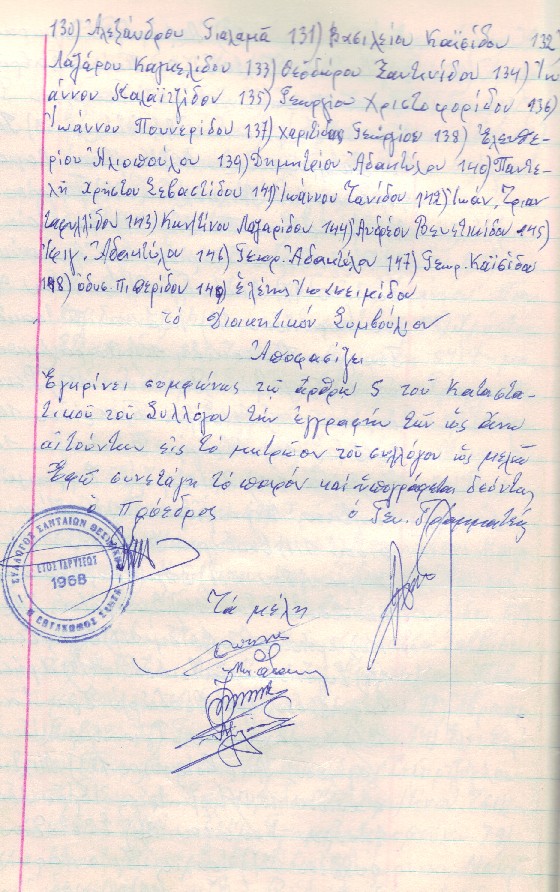 130) Ἀλεξάνδρου Γιαλαμᾶ 131) Βασιλείου Καϊσίδου 132
Λαζάρου Καγκελίδου 133) Θεοδώρου Ξαντινίδου 134) Ἰω
άννου Καλαϊτζίδου 135) Γεωργίου Χριστοφορίδου 136
Ἰωάννου Πουνερίδου 137) Γεώργιος 138) Ἐλευθε-
ρίου Ἡλιοπούλου 139) Δημητρίου Ἀδακτύλου 140) Παντε-
λῆ Χρήστου Σεβαστίδου 141) Ἰωάννου Τανίδου 142) Ἰωάν. Τριαν
ταφυλλίδου 143) Κων/τίνου Λαζαρίδου 144) Ἀνδρέου Βενετικίδου 145)
Ἀδακτύλου 146) Γεωρ. Ἀδακτύλου 147) Γεωρ. Καϊσίδου
148) Ὀδυσ. Πιπερίδου 149) Ἑλένης
τό Διοικητικόν Συμβούλιον
Ἀποφασίζει
Ἐγκρίνει συμφώνως τῷ ἄρθρῳ 5 τοῦ Καταστα-
τικοῦ τοῦ Συλλόγου τήν ἐγγραφήν τῶν ὡς ἄνω
αἰτούντων εἰς τό μητρῶον τοῦ συλλόγου ὡς μελῶν
Ἐφ' ᾧ συνετάγη τό παρόν καί ὑπογράφεται δεόντως
ὁ Πρόεδρος ὁ Γεν. Γραμματεύς
ΣΥΛΛΟΓΟΣ ΣΑΝΤΑΙΩΝ ΘΕΣ/ΝΙΚΗΣ
ΕΤΟΣ ΙΔΡΥΣΕΩΣ
1968
Η ΕΠΤΑΚΩΜΟΣ ΣΑΝΤΑ
Τά μέλη